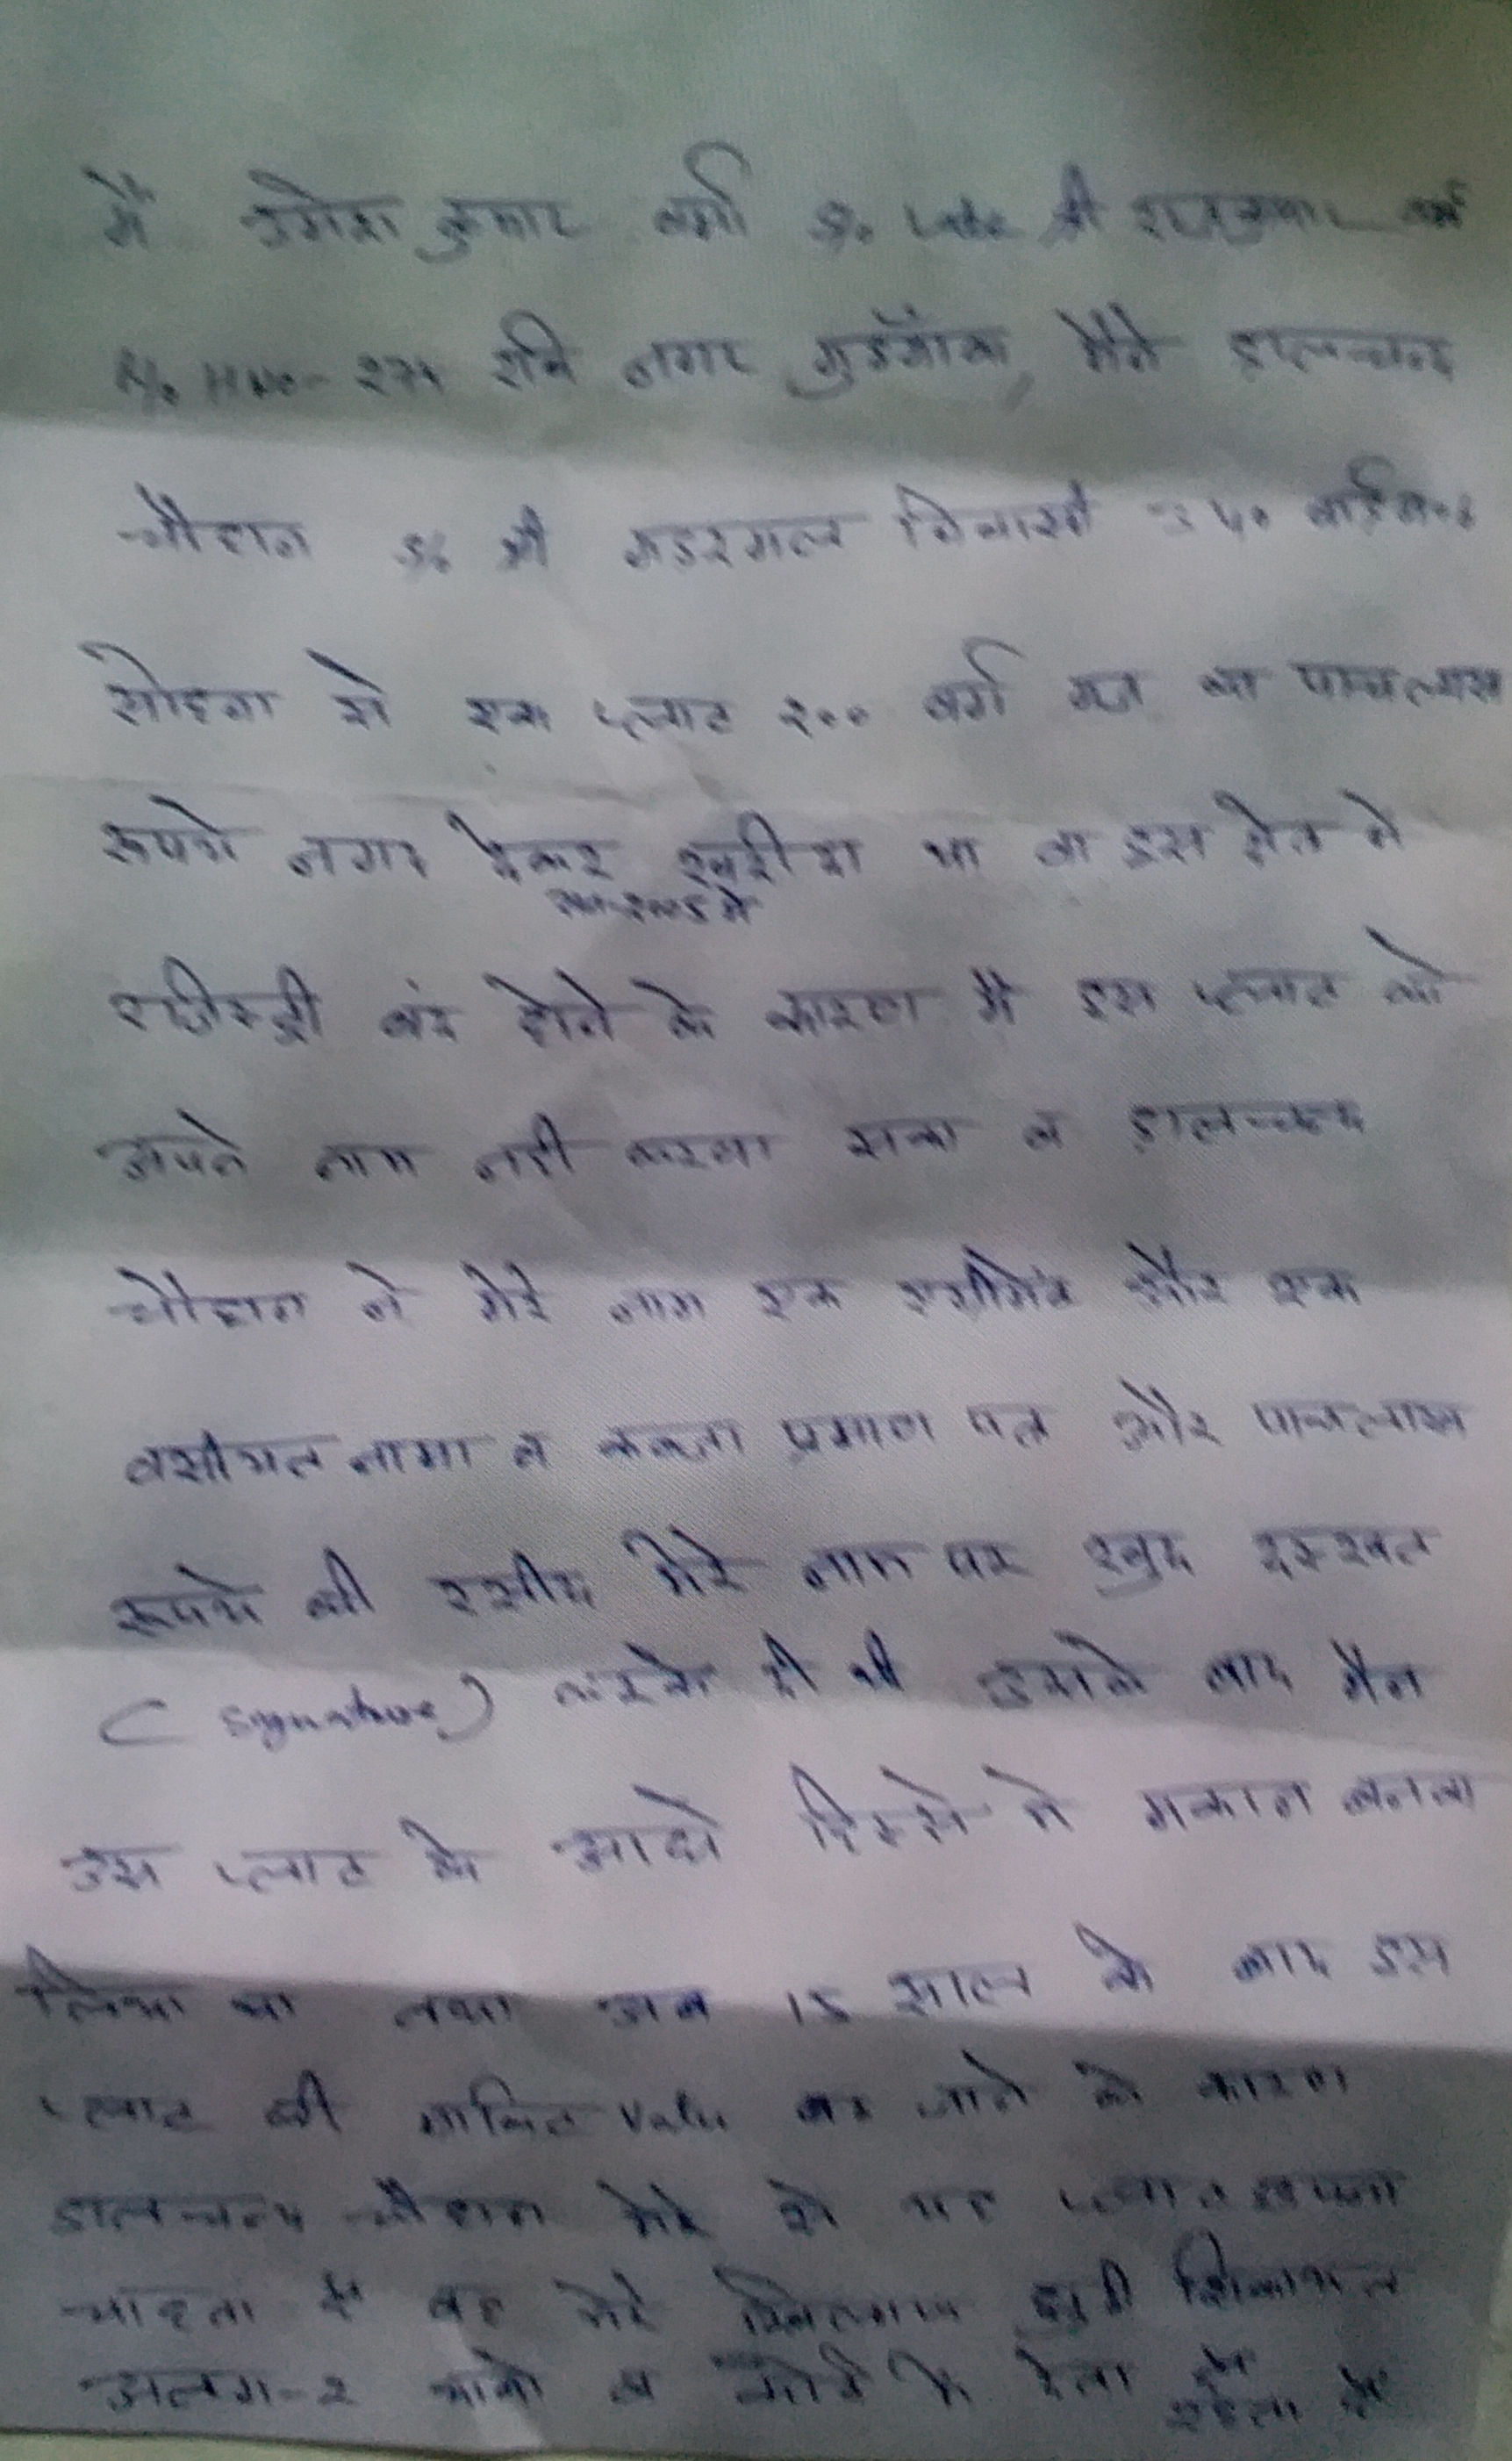 मैं उमेश कुमार वर्मा S/o Late श्री राजकुमार वर्मा
R/o HNo- 274 रवि नगर गुडगाँव, मैने डालचन्द
चौहान S/o श्री निवासी वार्ड न०
सोहना से एक प्लाट २०० वर्ग गज का पाचलाख
रूपये नगद देकर खरीदा था व इस क्षेत्र मे
सन-2005 मे
रजिस्ट्री बंद होने के कारण मै इस प्लाट को
अपने नाम नही करवा सका व डालचन्द
चौहान ने मेरे नाम एक एग्रीमेंट और एक
वसीयत नामा व कब्जा प्रमाण पत्र और पाचलाख
रूपये की रसीद मेरे नाम पर खुद दस्खत
(Signature) करके दी थी उसके बाद मैन
उस प्लाट के आधे हिस्से मे मकान बनवा
लिया था तथा अब 15 साल के बाद इस
प्लाट की मार्किट Value बढ जाने के कारण
डालचन्द चौहान मेरे से यह प्लाट हडपना
चाहता है वह मेरे खिलाफ झुठी शिकायत
अलग-२ थानो व कोर्ट मे देता रहता है